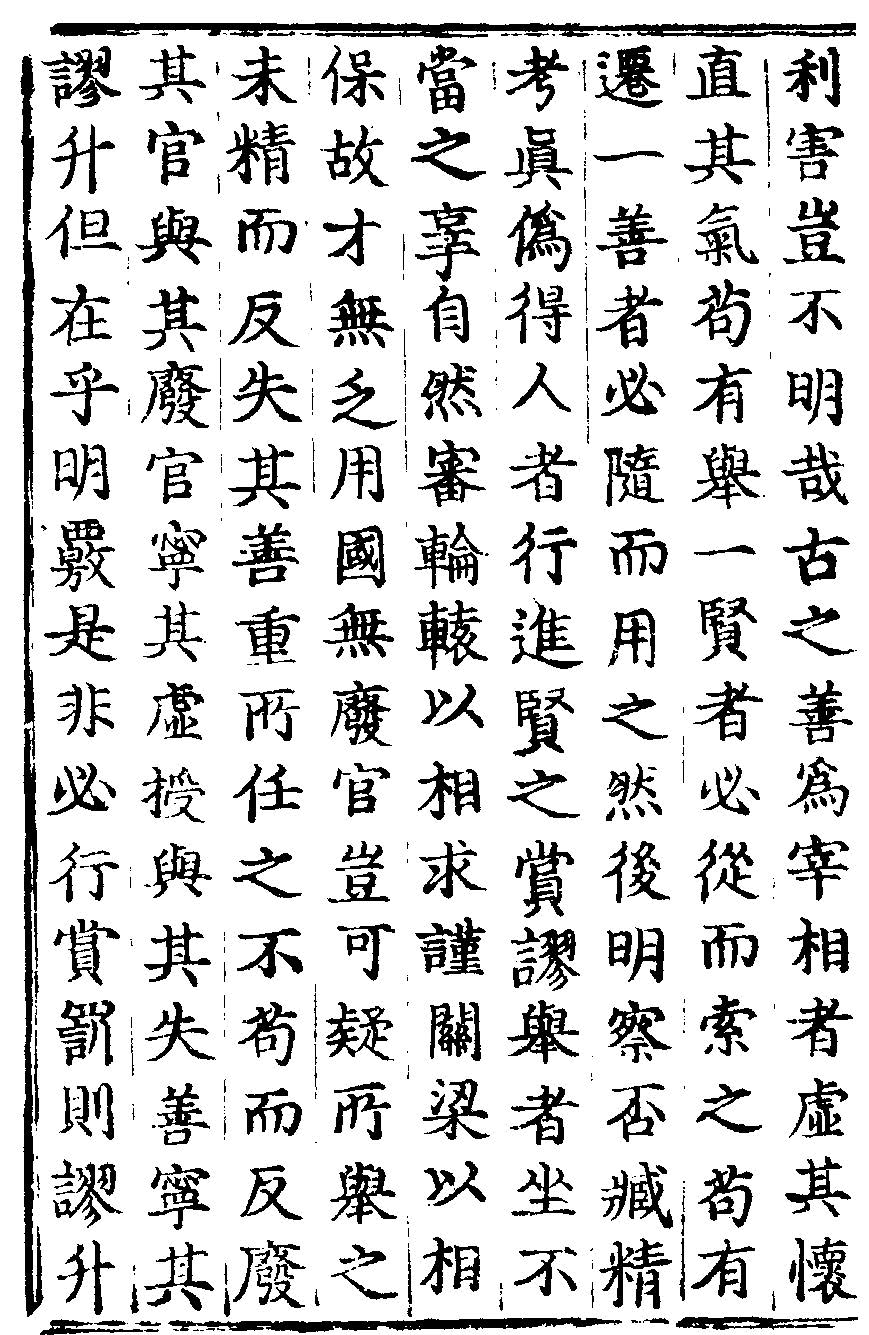 利害豈不明哉古之善爲宰相者虛其懷
直其氣苟有舉一賢者必從而索之苟有
遷一善者必隨而用之然後明察否臧精
考眞僞得人者行進賢之賞謬舉者坐不
當之辜自然審輪轅以相求謹關梁以相
保故才無乏用國無廢官豈可疑所舉之
未精而反失其善重所任之不苟而反廢
其官與其廢官寧其虛授與其失善寧其
謬升但在乎明覈是非必行賞罰則謬升